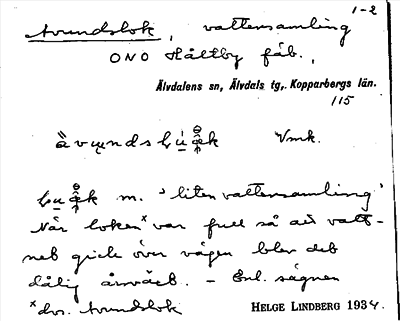 1-2
Avundslok, vattensamling
ONO Håltby fäb.,
Älvdalens sn, Älvdals tg, Kopparbergs län.
115
Vmk.
m. 'liten vattensamling'
När loken x var full så att vatt-
net gick över vägen blev det
dålig årväxt. - Enl. sägnen
x dvs. Avundslok
HELGE LINDBERG 1934.